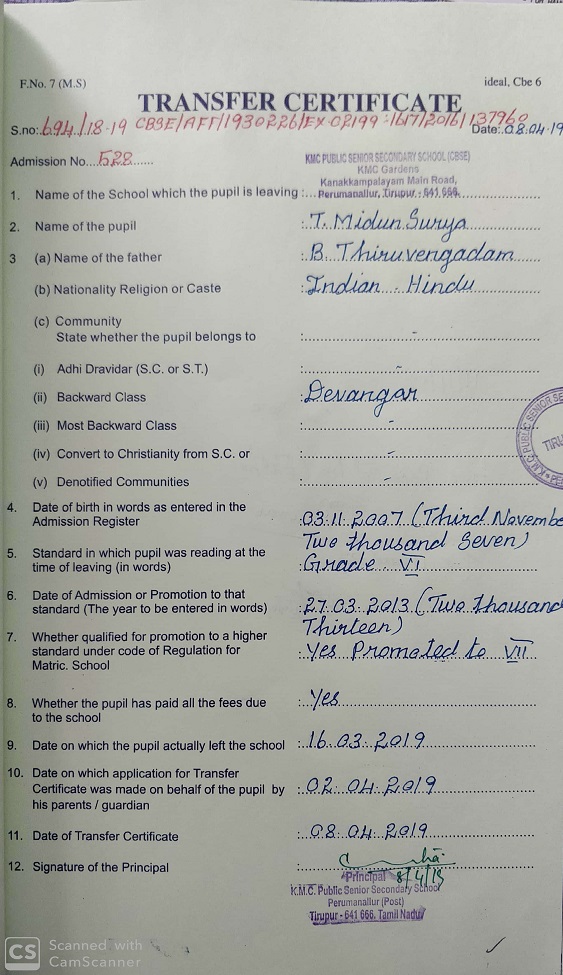 F.No. 7 (M.S) ideal, Cbe 6
TRANSFER CERTIFICATE
S.no: 694/18-19 CBSE/AFF/1930226/EX-02199:1617/2016/137960 Date: 08.04.19
Admission No....528......
KMC PUBLIC SENIOR SECONDARY SCHOOL (CBSE)
KMC Gardens
Kanakkampalayam Main Road,
1. Name of the School which the pupil is leaving :... Perumanallur, Tirupur - 641 666.
2. Name of the pupil : T. Midun Surya
3 (a) Name of the father : B. Thiruvengadam
(b) Nationality Religion or Caste : Indian - Hindu
(c) Community
State whether the pupil belongs to : -
(i) Adhi Dravidar (S.C. or S.T.) : -
(ii) Backward Class : Devangar
(iii) Most Backward Class : -
(iv) Convert to Christianity from S.C. or : -
(v) Denotified Communities : -
K.M.C PUBLIC SENIOR SE
TIRU
4. Date of birth in words as entered in the
Admission Register : 03.11.2007 (Third Novembe
Two thousand Seven)
5. Standard in which pupil was reading at the
time of leaving (in words) : Grade - VI
6. Date of Admission or Promotion to that
standard (The year to be entered in words) : 27.03.2013 (Two thousand
Thirteen)
7. Whether qualified for promotion to a higher
standard under code of Regulation for : Yes Promoted to VII
Matric. School
8. Whether the pupil has paid all the fees due : Yes
to the school
9. Date on which the pupil actually left the school : 16.03.2019
10. Date on which application for Transfer
Certificate was made on behalf of the pupil by : 02.04.2019
his parents / guardian
11. Date of Transfer Certificate : 08.04.2019
12. Signature of the Principal :
Principal 8/4/19
K.M.C. Public Senior Secondary School
Perumanallur (Post)
Tirupur - 641 666. Tamil Nadu
CS Scanned with
CamScanner